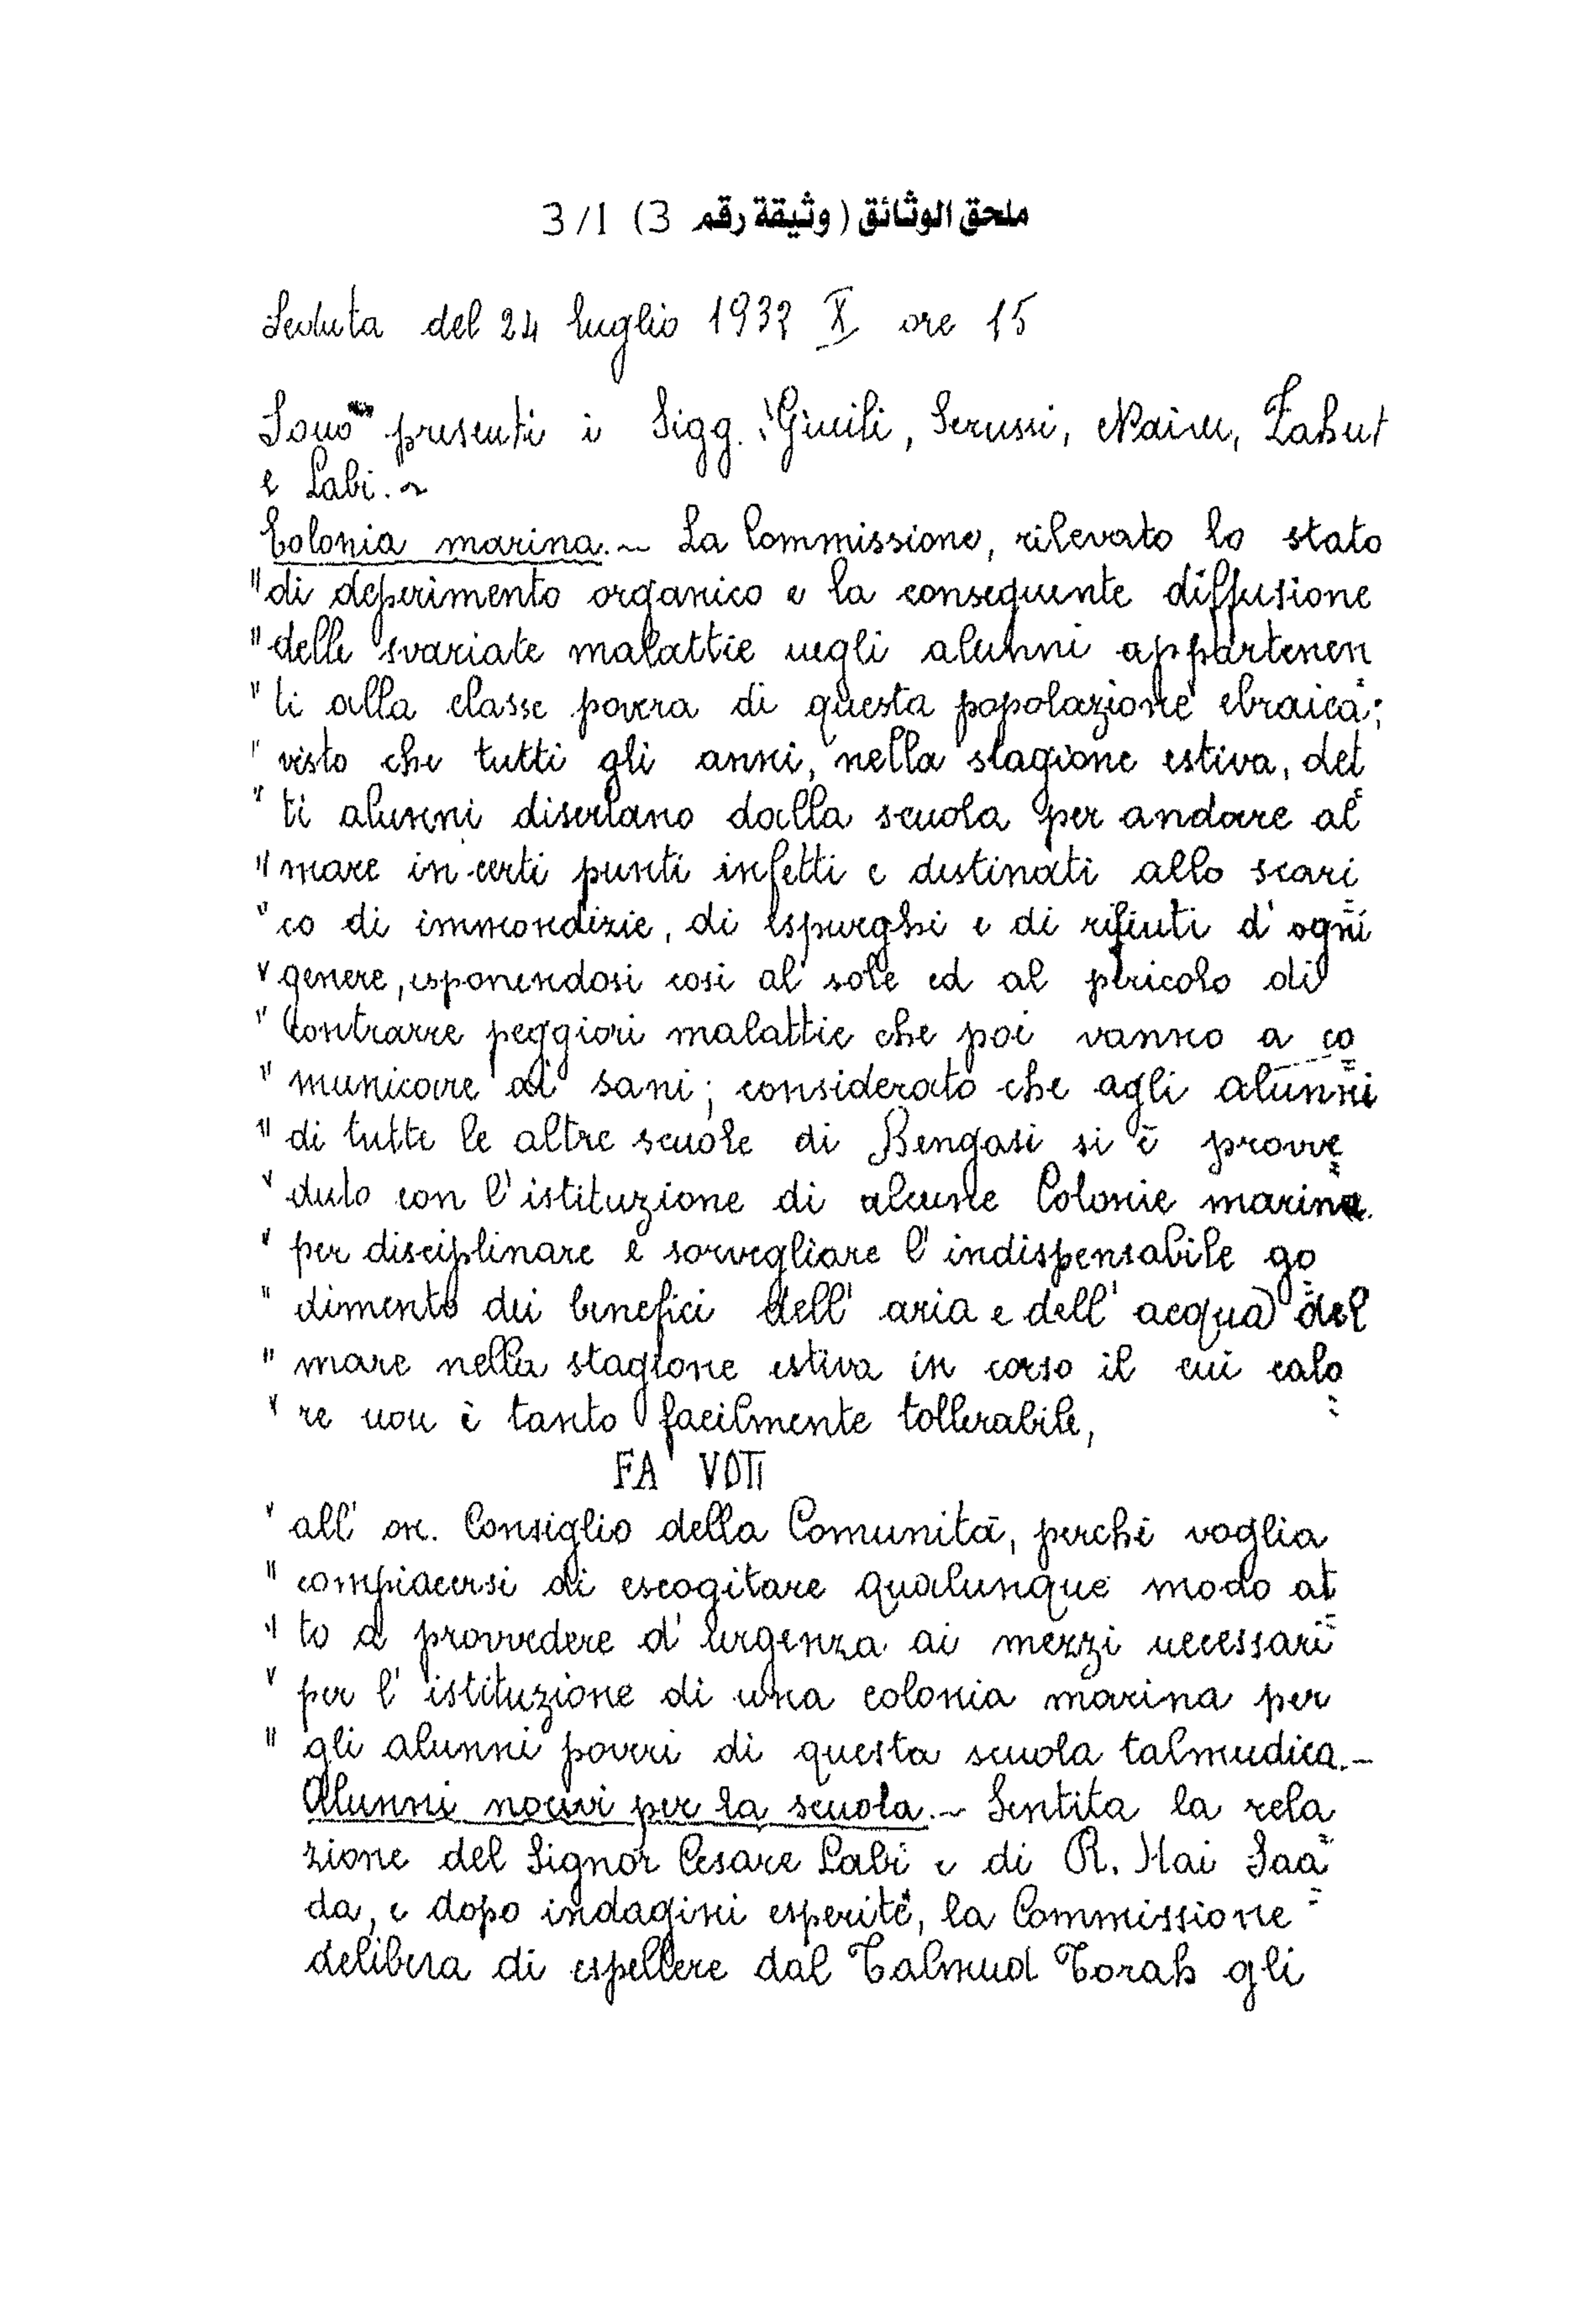 ملحق الوثائق (وثيقة رقم 3) 3/1
Seduta del 24 luglio 1932 X ore 15
Sono presenti i Sigg. Giuili, Serussi, Naim, Zahut
e Labi. ~
Colonia marina. ~ La Commissione, rilevato lo stato
" di deperimento organico e la conseguente diffusione
" delle svariate malattie negli alunni appartenen
" ti alla classe povera di questa popolazione ebraica;
" visto che tutti gli anni, nella stagione estiva, det
" ti alunni disertano dalla scuola per andare al
" mare in certi punti infetti e destinati allo scari
" co di immondizie, di espurghi e di rifiuti d'ogni
" genere, esponendosi cosi al sole ed al pericolo di
" contrarre peggiori malattie che poi vanno a co
" municare ai sani; considerato che agli alunni
" di tutte le altre scuole di Bengasi si è provve
" duto con l'istituzione di alcune Colonie marine
" per disciplinare e sorvegliare l'indispensabile go
" dimento dei benefici dell'aria e dell'acqua del
" mare nella stagione estiva in corso il cui calo
" re non è tanto facilmente tollerabile,
FA VOTI
" all'on. Consiglio della Comunità, perchè voglia
" compiacersi di escogitare qualunque modo at
" to a provvedere d'urgenza ai mezzi necessari
" per l'istituzione di una colonia marina per
" gli alunni poveri di questa scuola talmudica. -
Alunni nocivi per la scuola. ~ Sentita la rela
zione del Signor Cesare Labi e di R. Hai Saa
da, e dopo indagini esperite, la Commissione
delibera di espellere dal Talmud Torah gli